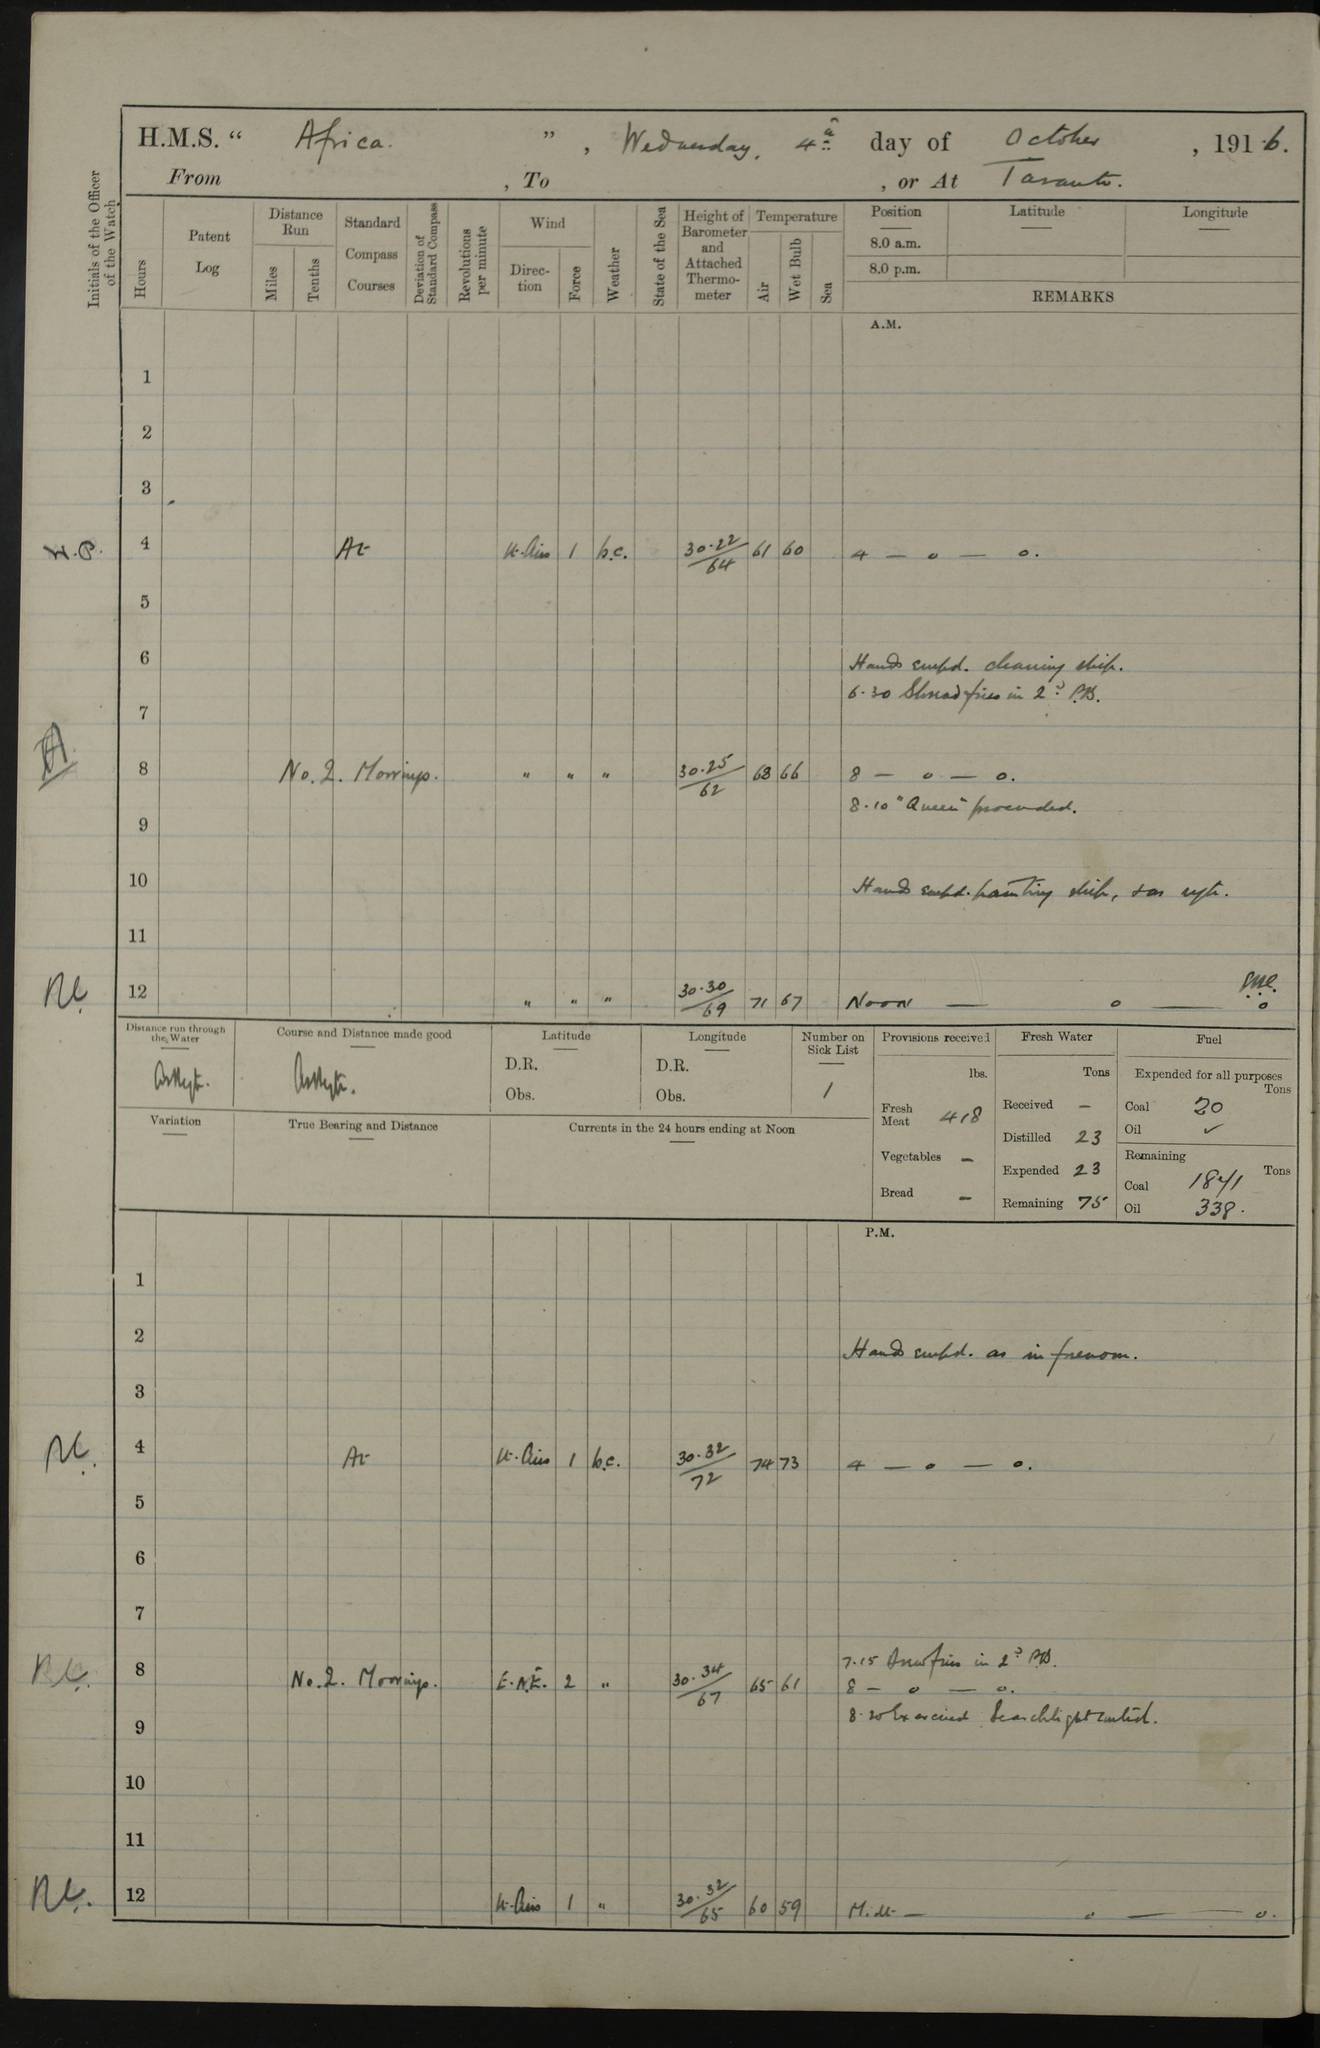 H.M.S. “ Africa. ” , Wednesday, 4th day of October , 1916.
From , To , or At Taranto.
Initials of the Officer of the Watch
Hours
Patent Log
Distance Run
Miles
Tenths
Standard Compass Courses
Deviation of Standard Compass
Revolutions per minute
Wind
Direc-tion
Force
Weather
State of the Sea
Height of Barometer and Attached Thermo-meter
Temperature
Air
Wet Bulb
Sea
Position
8.0 a.m.
8.0 p.m.
Latitude
Longitude
REMARKS
A.M.
1
2
3
4 At Lt. Airs 1 b.c. 30.22/64 61 60 4 — o — o.
5
6 Hands empd. cleaning ship.
6.30 Spread fires in 2nd P.B.
7
8 No. 2. Moorings. " " " 30.25/62 68 66 8 — o — o.
8.10 "Queen" proceeded.
9
10 Hands empd. painting ship, & as reqte.
11
12 " " " 30.30/69 71 67 Noon — o — o
Distance run through the Water
Course and Distance made good
Latitude
D.R.
Obs.
Longitude
D.R.
Obs.
Number on Sick List
1
Provisions received
lbs.
Fresh Meat 418
Vegetables –
Bread –
Fresh Water
Tons
Received –
Distilled 23
Expended 23
Remaining 75
Fuel
Expended for all purposes
Tons
Coal 20
Oil ✓
Remaining
Tons
Coal 1841
Oil 338.
Variation
True Bearing and Distance
Currents in the 24 hours ending at Noon
P.M.
1
2 Hands empd. as in forenoon.
3
4 At Lt. Airs 1 b.c. 30.32/72 74 73 4 — o — o.
5
6
7
7.15 Drew fires in 2nd P.B.
8 No. 2. Moorings. E.N.E. 2 " 30.34/67 65 61 8 — o — o.
8.20 Exercised Searchlight control.
9
10
11
12 Lt. Airs 1 " 30.32/65 60 59 Midt. — o — o.